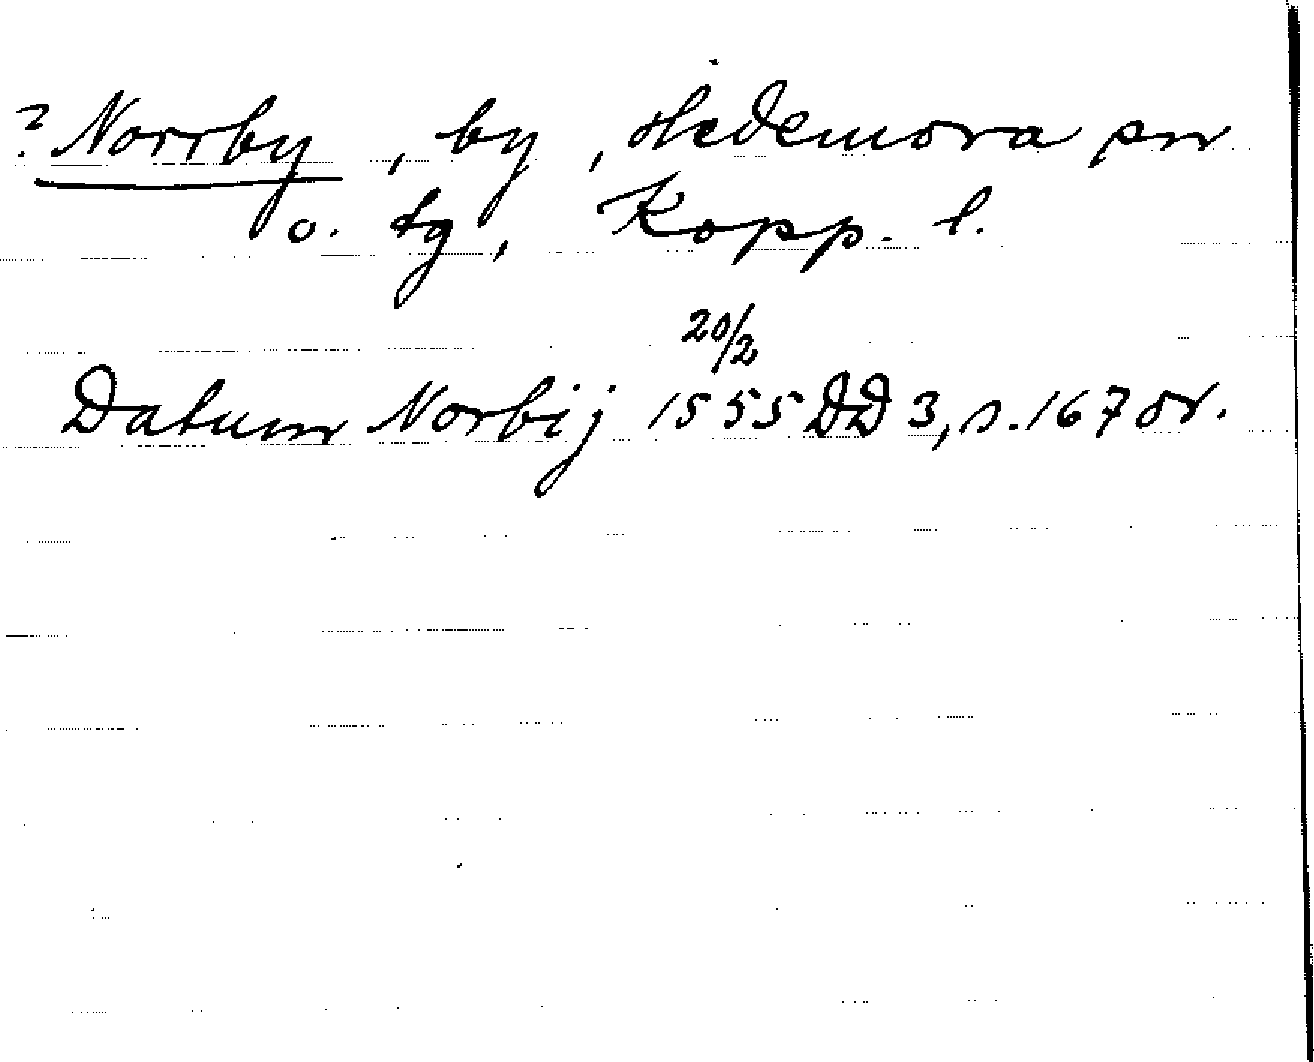 ? Norrby, by, Hedemora sn
o. tg, Kopp. l.
20/2
Datum Norbij 1555 DD 3, s. 167 or.